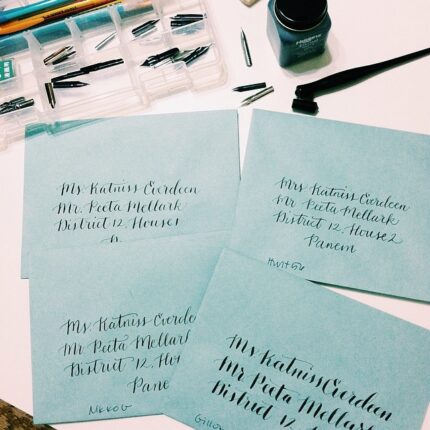 Higgins
Ms Katniss Everdeen
Mr. Peeta Mellark
District 12, House 1
Mrs Katniss Everdeen
Mr Peeta Mellark
District 12, House 2
Panem
Hunt 56
Ms. Katniss Everde
Mr Peeta Mellar
District 12, Ho
Pane
Nikko G
Ms Katniss Everdeen
Mr Peeta Mellark
District 12,
Gillott